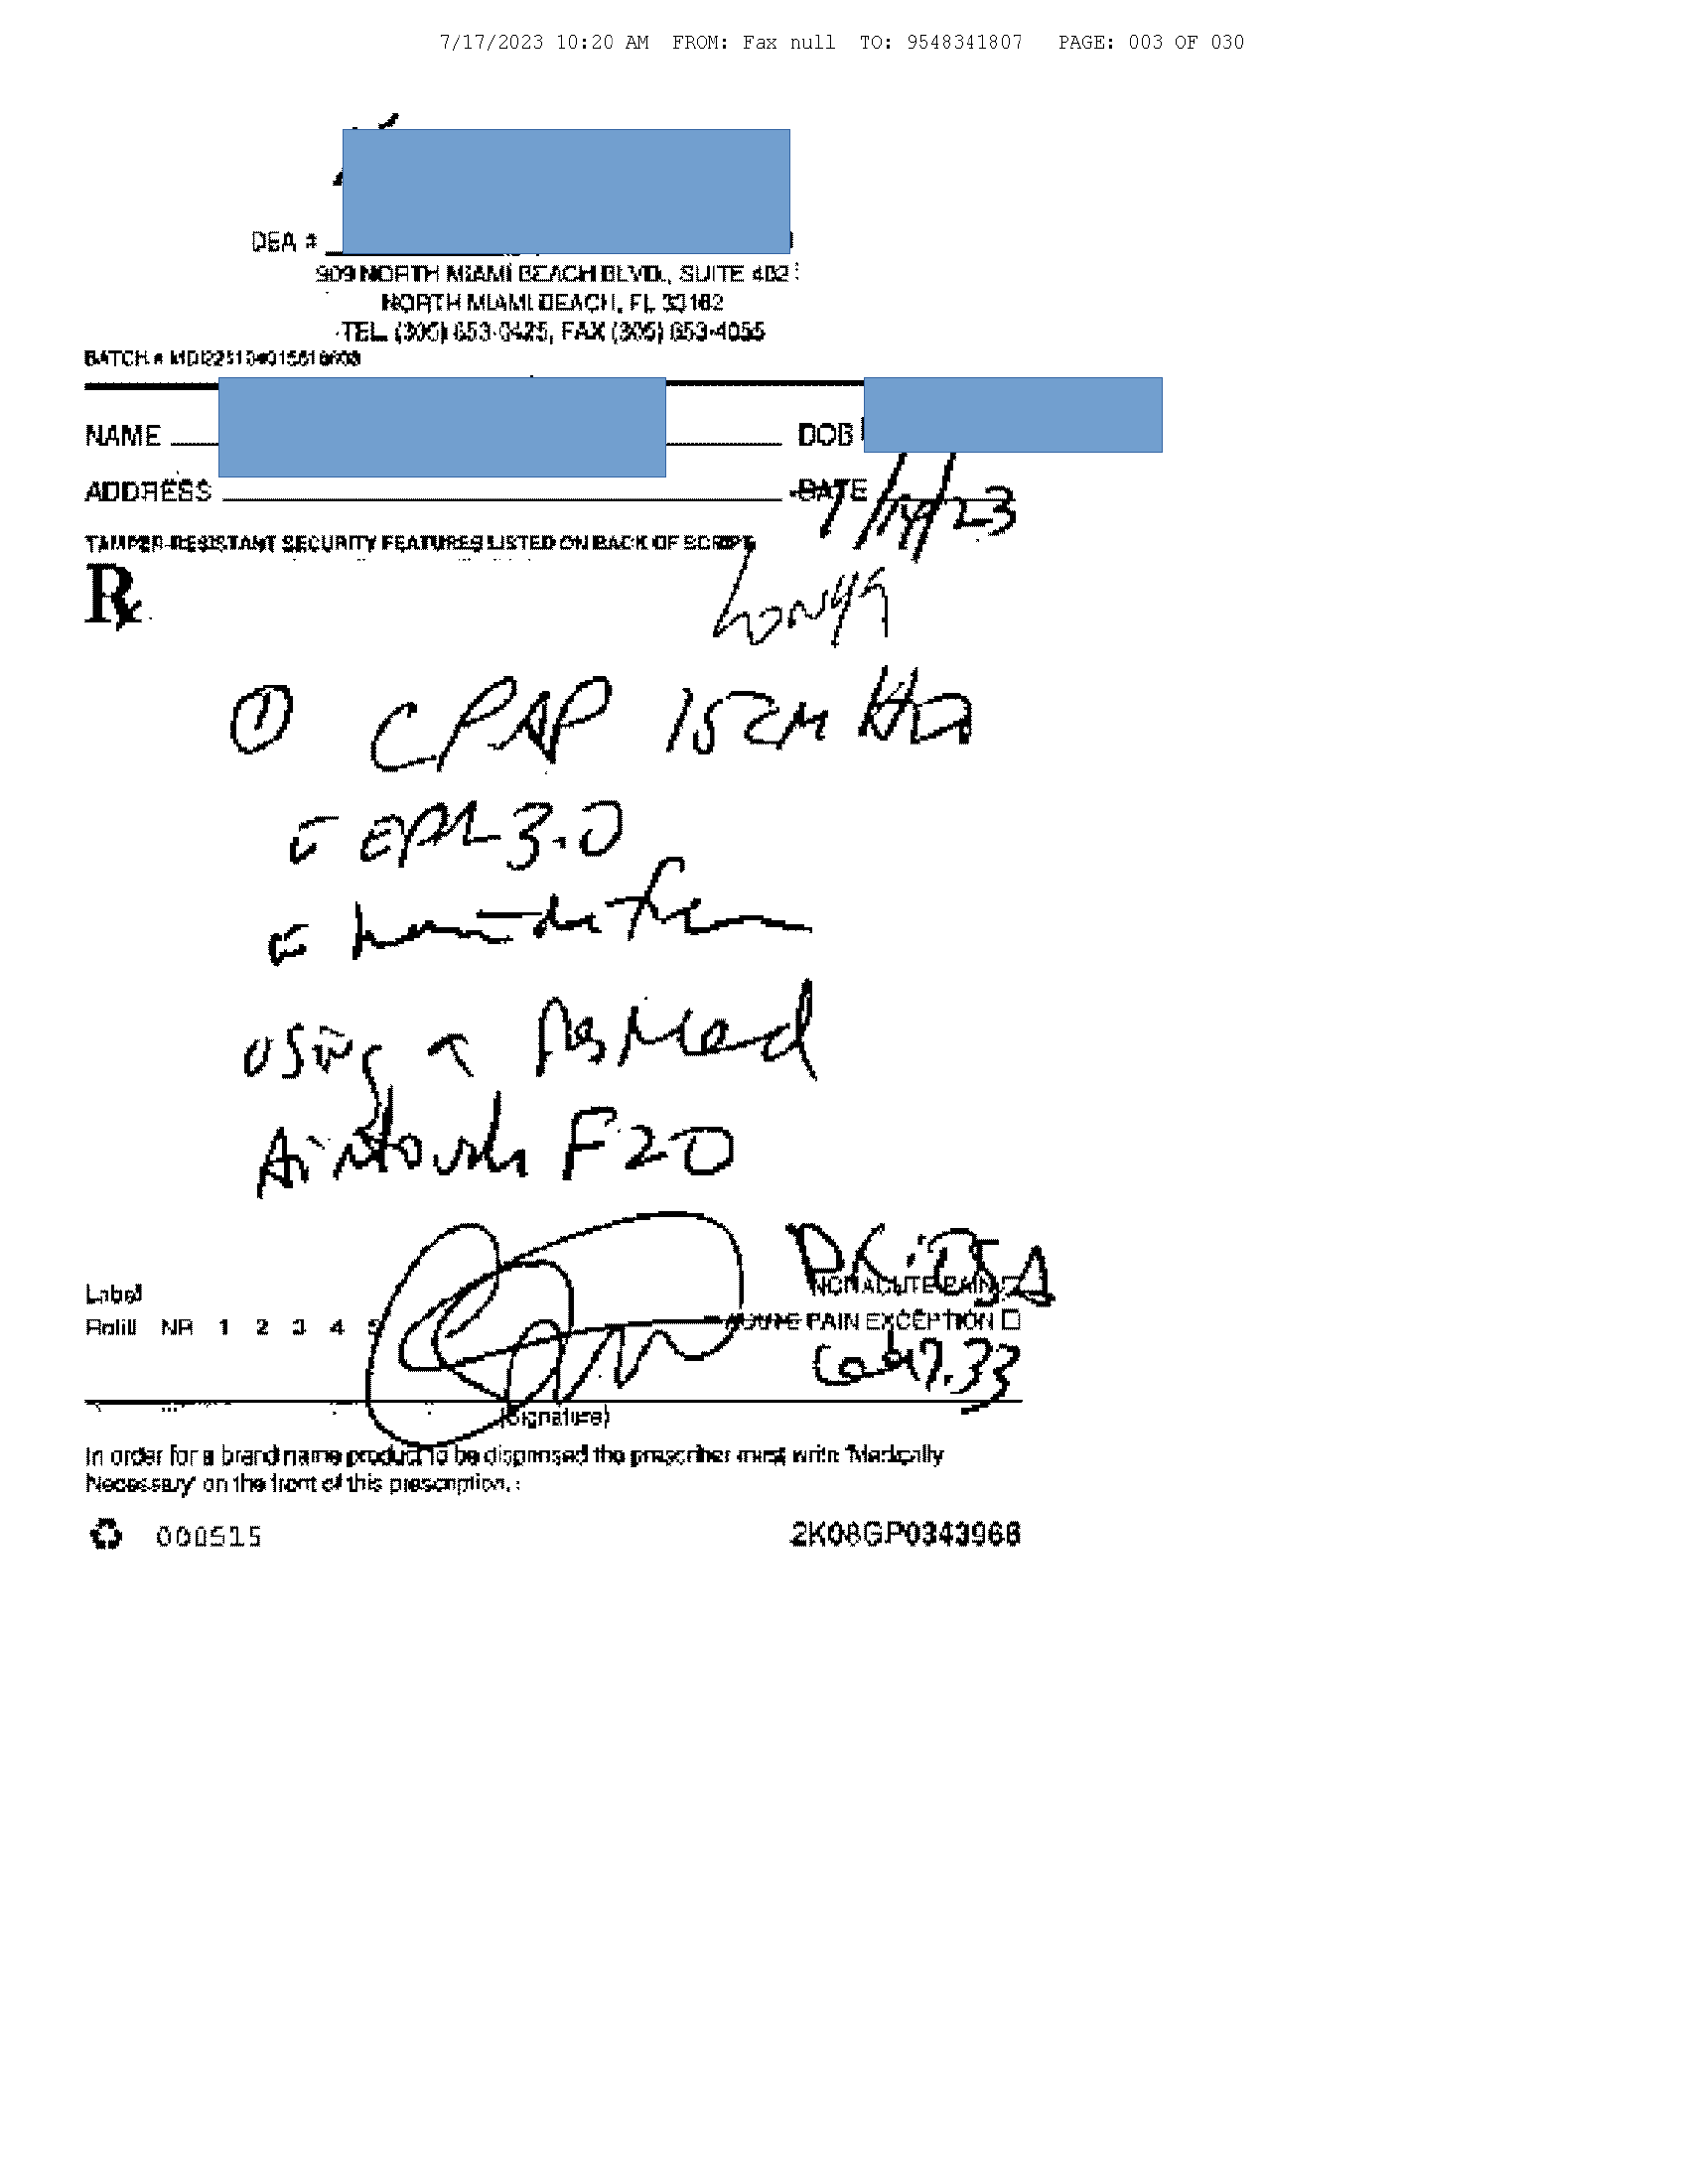 7/17/2023 10:20 AM FROM: Fax null TO: 9548341807 PAGE: 003 OF 030
DEA #
909 NORTH MIAMI BEACH BLVD., SUITE 402
NORTH MIAMI BEACH, FL 33162
TEL. (305) 653-0425, FAX (305) 653-4055
BATCH #
NAME DOB
ADDRESS DATE 7/14/23
TAMPER-RESISTANT SECURITY FEATURES LISTED ON BACK OF SCRIPT
Rx
① CPAP 15 cm H2O
c̄ EPR 3.0
c̄ humidifier
using a ResMed
Airtouch F20
DX: OSA
Label NONACUTE PAIN
Refill NR 1 2 3 4 5 ACUTE PAIN EXCEPTION
G47.33
(Signature)
In order for a brand name product to be dispensed the prescriber must write 'Medically
Necessary' on the front of this prescription.
000515 2K08GP0343966